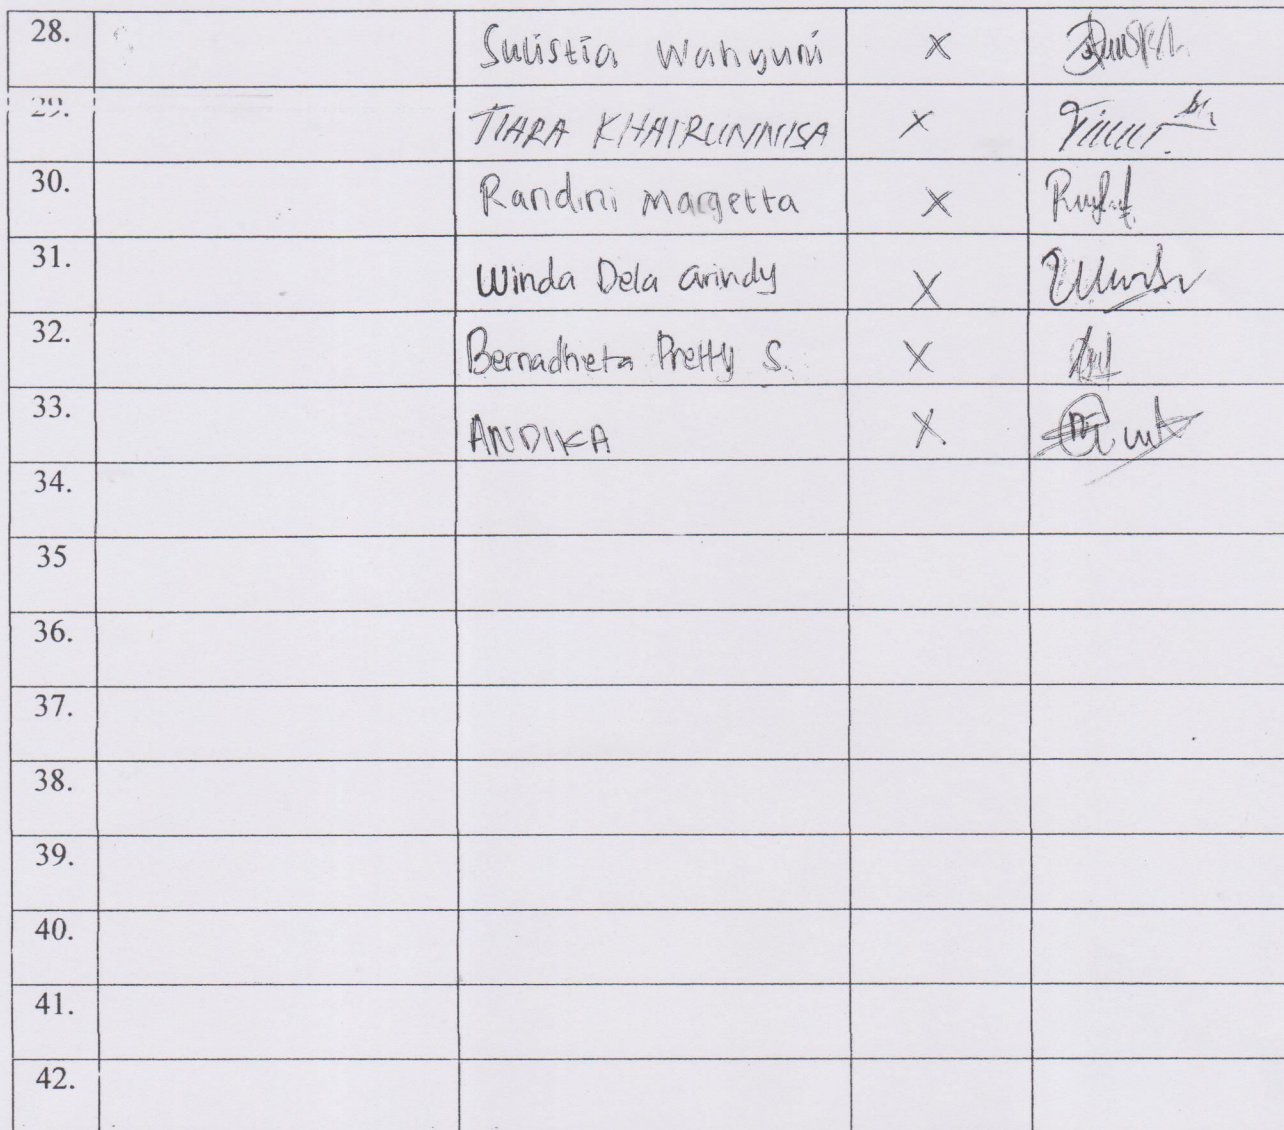 28. Sulistia Wahyuni X
29. TIARA KHAIRUNNISA X
30. Randini Margetta X
31. Winda Dela Arindy X
32. Bernadheta Pretty S. X
33. ANDIKA X
34.
35
36.
37.
38.
39.
40.
41.
42.